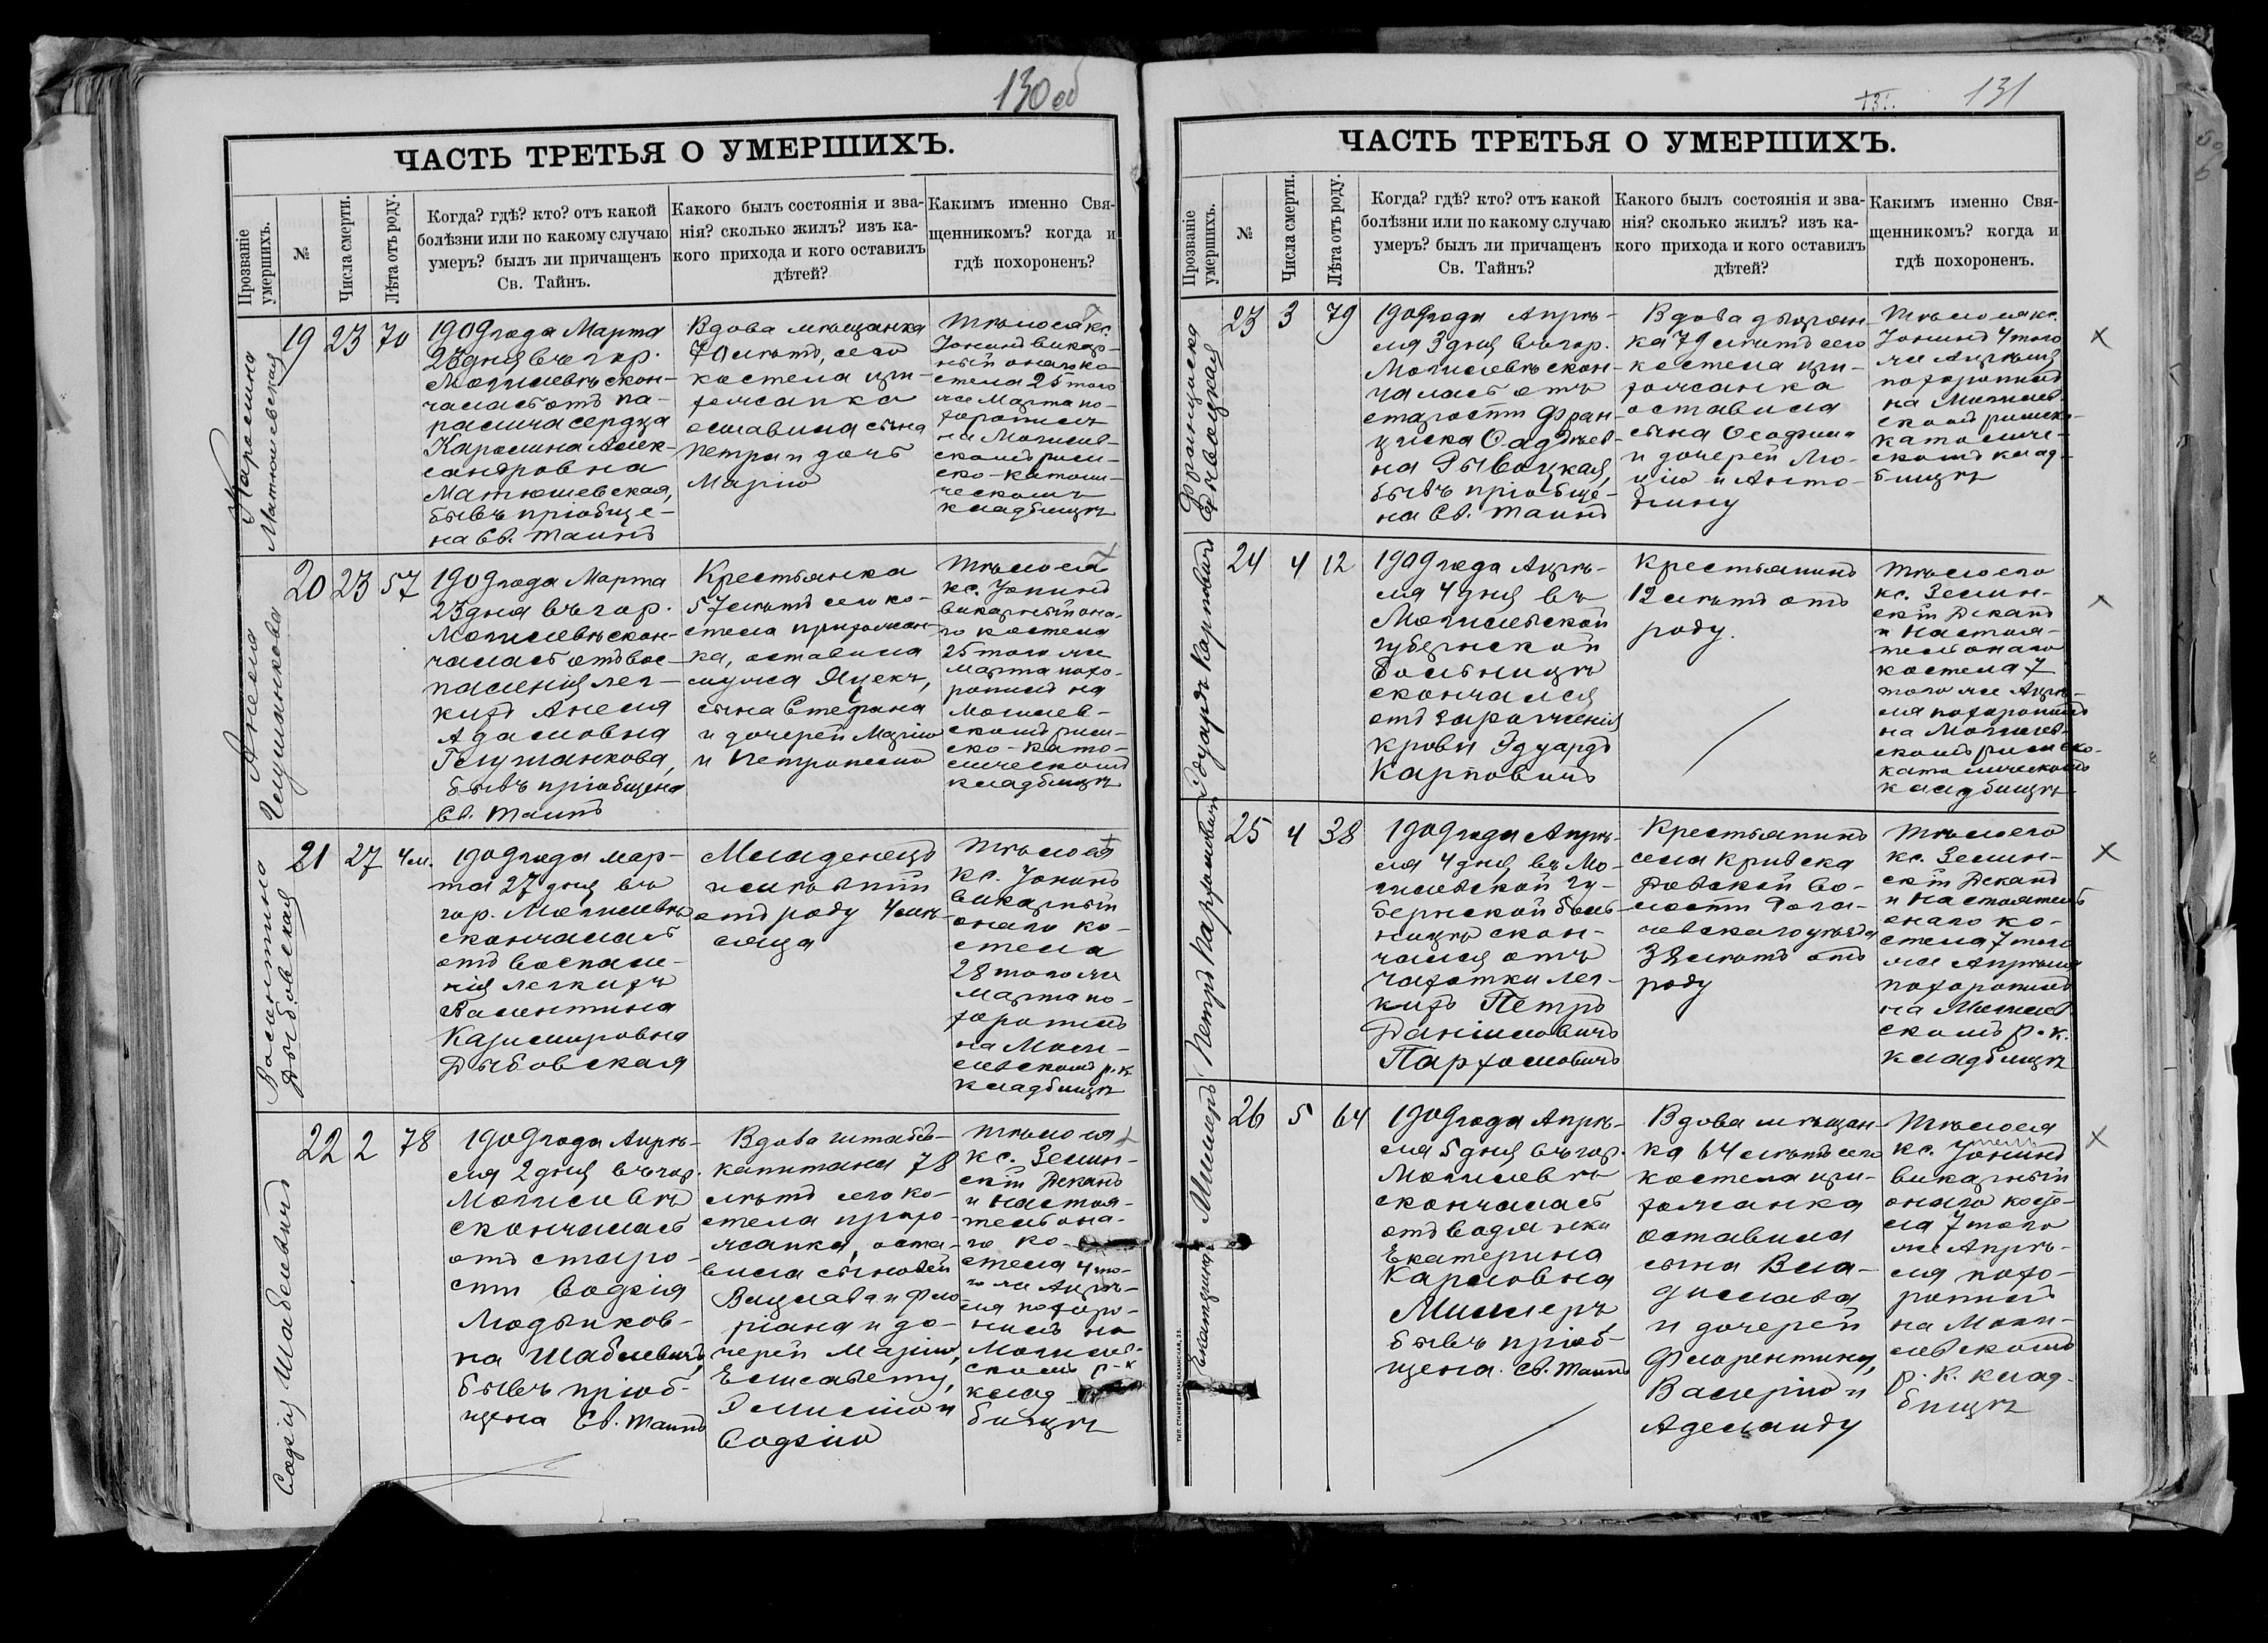 130 об
ЧАСТЬ ТРЕТЬЯ О УМЕРШИХЪ.
Прозваніе умершихъ.
№
Числа смерти.
Лѣта отъ роду.
Когда? гдѣ? кто? отъ какой
болѣзни или по какому случаю
умеръ? былъ ли причащенъ
Св. Тайнъ.
Какого былъ состоянія и зва-
нія? сколько жилъ? изъ ка-
кого прихода и кого оставилъ
дѣтей?
Какимъ именно Свя-
щенникомъ? когда и
гдѣ похороненъ?
Каролина
Матюшевская
19
23
70
1909 года Марта
23 дня въ гор.
Могилевѣ скон-
чалась отъ па-
ралича сердца
Каролина Алек-
сандровна
Матюшевская,
бывъ пріобще-
на Св. Таинъ
Вдова мѣщанка
70 лѣтъ, сего
костела при-
хожанка
оставила сына
Петра и дочь
Марію
Тѣло ея кс.
Іонинъ викар-
ный онаго ко-
стела 25 того
же Марта по-
хоронилъ
на Могилев-
скомъ рим-
ско-католи-
ческомъ
кладбищѣ
Анеля
Глушанкова
20
23
57
1909 года Марта
23 дня въ гор.
Могилевѣ скон-
чалась отъ вос-
паленія лег-
кихъ Анеля
Адамовна
Глушанкова,
бывъ пріобщена
Св. Таинъ
Крестьянка
57 лѣтъ сего ко-
стела прихожан-
ка, оставила
мужа
сына Стефана
и дочерей Марію
и Петронелю
Тѣло ея
кс. Іонинъ
викарный она-
го костела
25 того же
Марта похо-
ронилъ на
Могилев-
скомъ рим-
ско-като-
лическомъ
кладбищѣ
Валентина
Дыбовская
21
27
4 м.
1909 года мар-
та 27 дня въ
гор. Могилевѣ
скончалась
отъ воспале-
нія легкихъ
Валентина
Казимировна
Дыбовская
Младенецъ
отъ роду 4 мѣ-
сяца
Тѣло ея
кс. Іонинъ
викарный
онаго ко-
стела
28 того же
Марта по-
хоронилъ
на Моги-
левскомъ р.к.
кладбищѣ
Софія Шаблевичъ
22
2
78
1909 года Апрѣ-
ля 2 дня въ гор.
Могилевѣ
скончалась
отъ старо-
сти Софія
Людвиков-
на Шаблевичъ,
бывъ пріоб-
щена Св. Таинъ
Вдова штабсъ-
капитана 78
лѣтъ сего ко-
стела прихо-
жанка, оста-
вила сыновей
Вацлава и Фло-
ріана и до-
черей Марію,
Елисавету,
Эмилію и
Софію
Тѣло ея
кс.Земин-
скій Деканъ
и настоя-
тель она-
го ко-
стела 4 то-
го же Апрѣ-
ля похоро-
нилъ на
Могилев-
скомъ р-к
клад
бищѣ
131.
131
ЧАСТЬ ТРЕТЬЯ О УМЕРШИХЪ.
Прозваніе умершихъ.
№
Числа смерти.
Лѣта отъ роду.
Когда? гдѣ? кто? отъ какой
болѣзни или по какому случаю
умеръ? былъ ли причащенъ
Св. Тайнъ?
Какого былъ состоянія и зва-
нія? сколько жилъ? изъ ка-
кого прихода и кого оставилъ
дѣтей?
Какимъ именно Свя-
щенникомъ? когда и
гдѣ похороненъ.
Франциска
23
3
79
1909 года Апрѣ-
ля 3 дня въ гор.
Могилевѣ скон-
чалась отъ
старости Фран-
циска Фаддѣев-
на
бывъ пріобще-
на Св. Таинъ
Вдова дворян-
ка 79 лѣтъ сего
костела при-
хожанка
оставила
сына Осафила
и дочерей Лю-
цію и Анто-
нину
Тѣло ея кс.
Іонинъ 4 того
же Апрѣля
похоронилъ
на Могилев-
скомъ римско-
католиче-
скомъ клад-
бищѣ
Эдуардъ Карповичъ
24
4
12
1909 года Апрѣ-
ля 4 дня въ
Могилевской
губернской
больницѣ
скончался
отъ зараженія
крови Эдуардъ
Карповичъ
Крестьянинъ
12 лѣтъ отъ
роду.
Тѣло его
кс. Земин-
скій Деканъ
и настоя-
тель онаго
костела 7
того же Апрѣ-
ля похоронилъ
на Могилев-
скомъ римско-
католическомъ
кладбищѣ
Петръ Пархомовичъ
25
4
38
1909 года Апрѣ-
ля 4 дня въ Мо-
гилевской гу-
бернской боль-
ницѣ скон-
чался отъ
чахотки лег-
кихъ Петръ
Даніиловичъ
Пархомовичъ
Крестьянинъ
села Кривска
Довской во-
лости Рога-
чевскаго уѣзда
38 лѣтъ отъ
роду
Тѣло его
кс. Земин-
скій Деканъ
и настоятель
онаго ко-
стела 7 того
же Апрѣля
похоронилъ
на Могилев
скомъ р.к.
кладбищѣ
Екатерина Миллеръ
26
5
64
1909 года Апрѣ-
ля 5 дня въ гор.
Могилевѣ
скончалась
отъ водянки
Екатерина
Карловна
Миллеръ,
бывъ пріоб-
щена Св. Таинъ
Вдова мѣщан-
ка 64 лѣтъ сего
костела при-
хожанка
оставила
сына Вла-
дислава
и дочерей
Флорентину,
Валерію и
Аделаиду
Тѣло ея
кс. Іонинъ
викарный
онаго косте-
ла 7 того
же Апрѣ-
ля похо-
ронилъ
на Моги-
левскомъ
р.к. клад-
бищѣ
ТИП. СТАНКЕВИЧА, КАЗАНСКАЯ, 33.